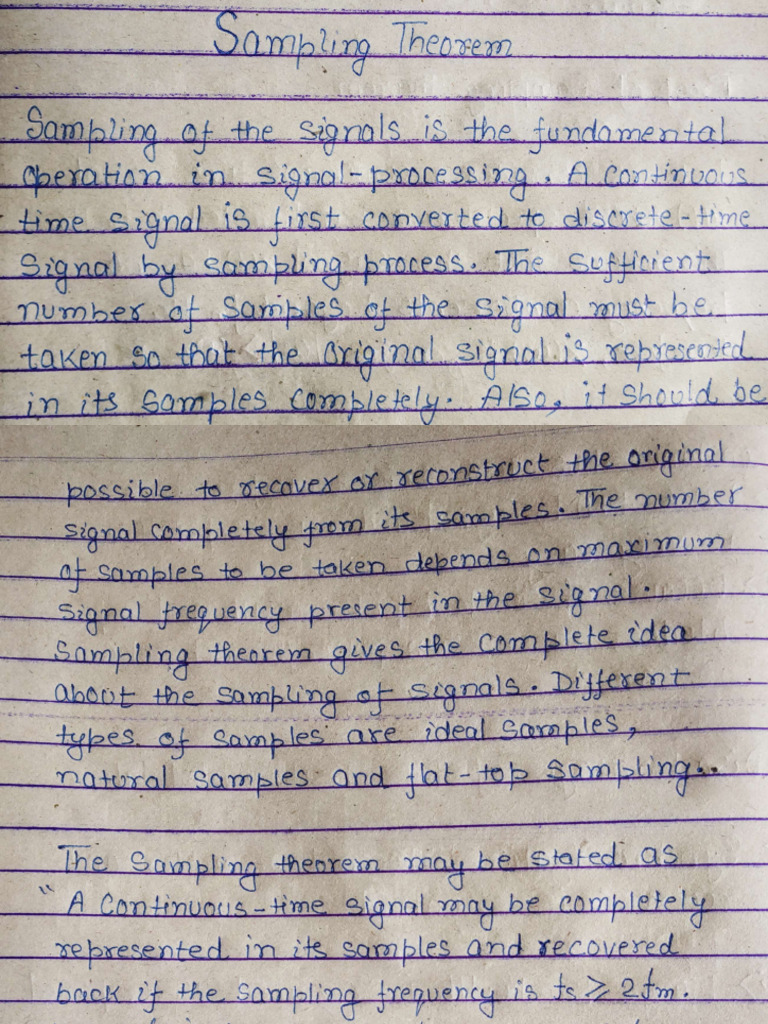 Sampling Theorem
Sampling of the signals is the fundamental
operation in signal-processing. A continuous
time signal is first converted to discrete-time
Signal by sampling process. The sufficient
number of samples of the signal must be
taken so that the original signal is represented
in its samples completely. Also, it should be
possible to recover or reconstruct the original
signal completely from its samples. The number
of samples to be taken depends on maximum
signal frequency present in the signal.
Sampling theorem gives the complete idea
about the sampling of signals. Different
types of samples are ideal samples,
natural samples and flat-top sampling..
The Sampling theorem may be stated as
" A Continuous-time signal may be completely
represented in its samples and recovered
back if the sampling frequency is fs ≥ 2fm.